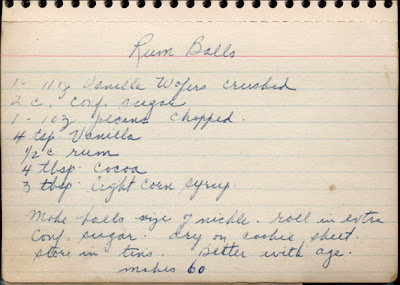 Rum Balls
1 - 11 oz Vanilla Wafers crushed
2 c. conf. sugar
1 - 10z pecans chopped.
4 tsp Vanilla
1/2 c rum
4 tbsp cocoa
3 tbsp light corn syrup.
Make balls size of nickle. roll in extra
conf. sugar. dry on cookie sheet.
store in tins. Better with age.
makes 60